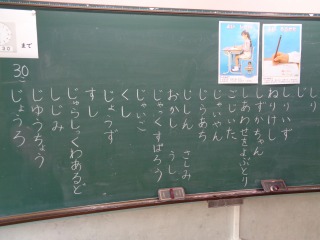 しり
じ
しりいす
ねりけし
しずかちゃん
しあわせをよぶとり
ごじいた
じゃいあん
じしん さしみ
おかし うし
じゃくすばろう
じゃいご
くし
じょうず
すし
じゅらしっくわあるど
しじみ
じゆうちょう
じょうろ
30
まで